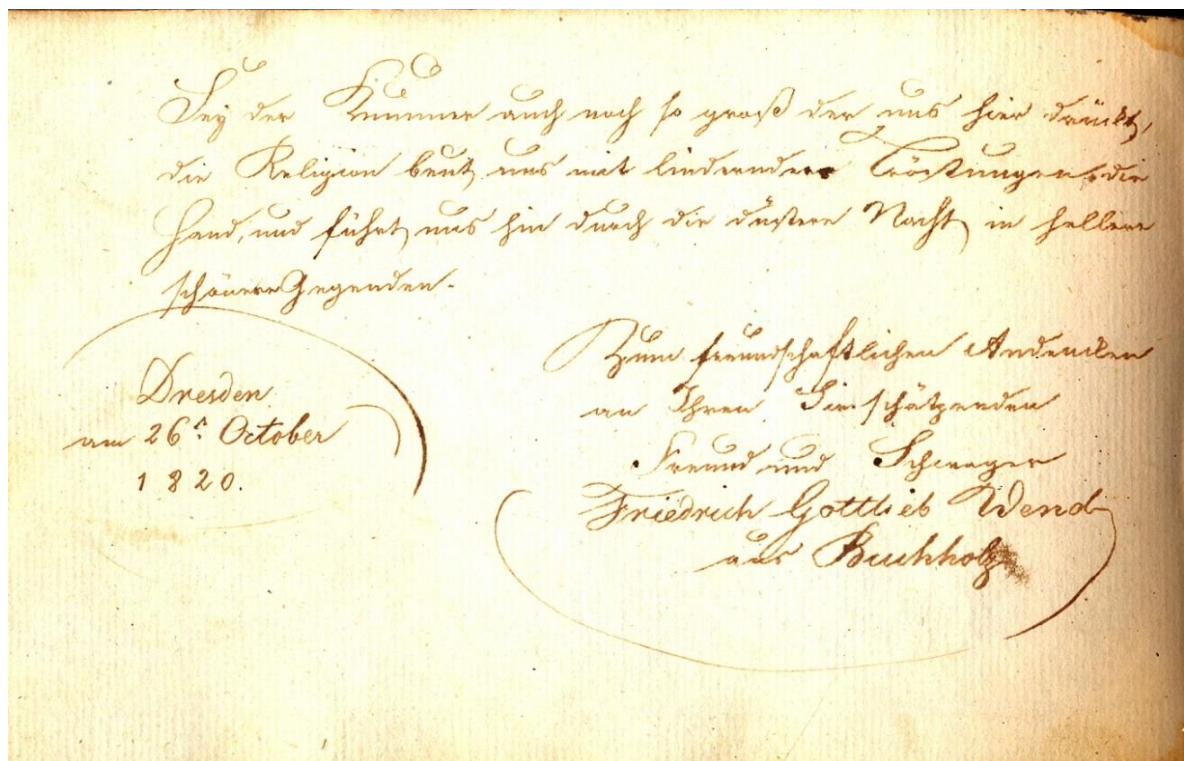 Sey der Kummer auch noch so groß der uns hier drückt,
die Religion beut uns mit lindernden Tröstungen die
Hand, und führt uns hin durch die düstere Nacht in hellere
schönere Gegenden.
Dresden
am 26ṛ October
1820.
Zum freundschaftlichen Andencken
an Ihren Sie schätzenden
Freund und Schwager
Friedrich Gottlieb Wend
aus Buchholz